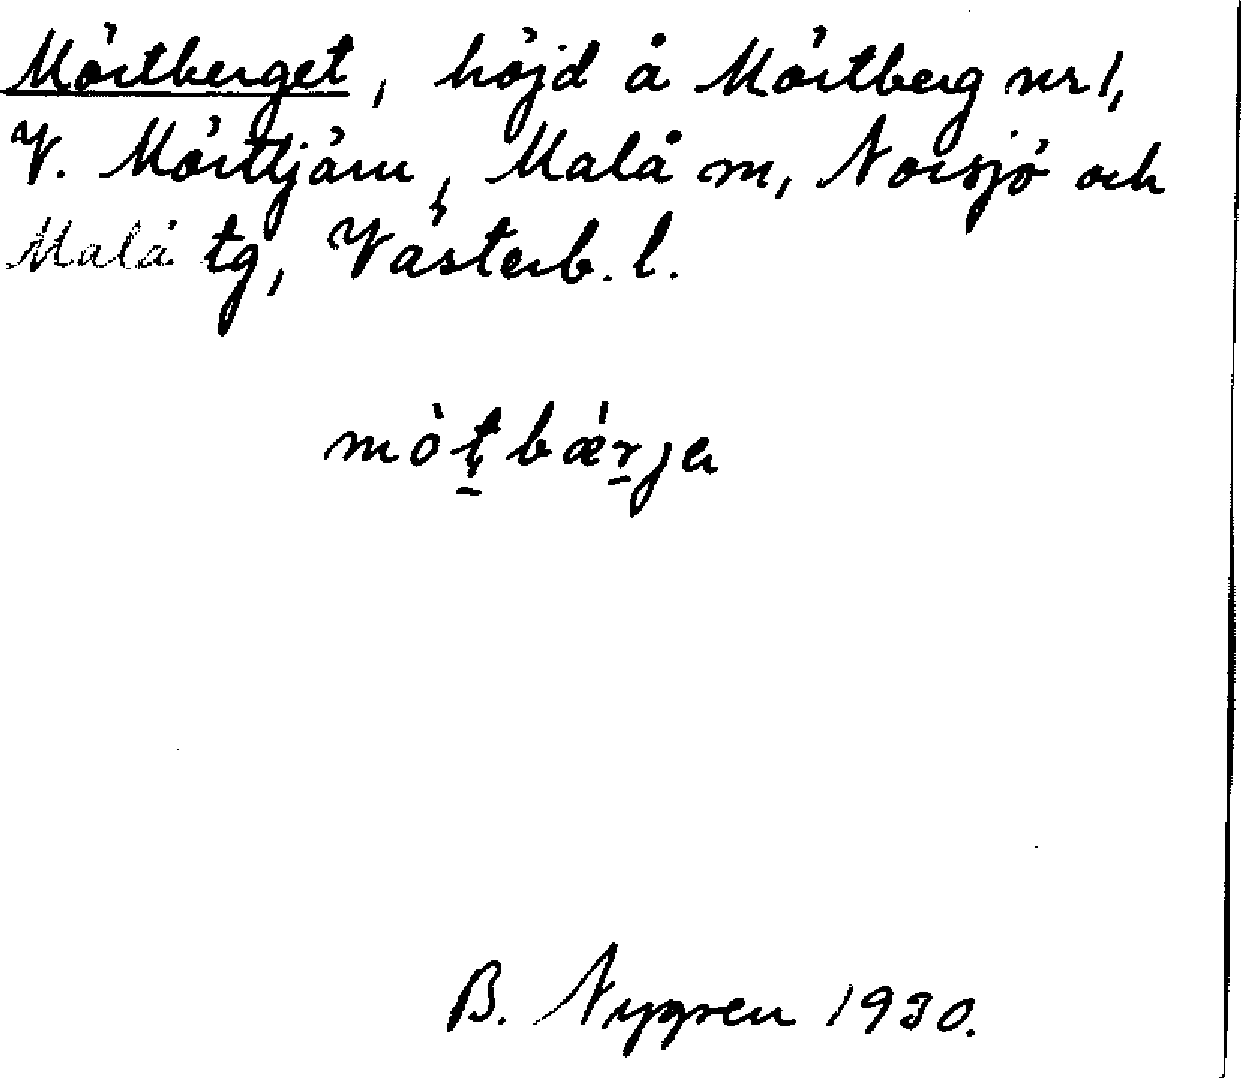 Mörtberget, höjd å Mörtberg nr 1,
V. Mörttjärn, Malå m, Norsjö och
Malå tg, Västerb. l.
mòt̠bǽr̠ja
B. Nygren 1930.